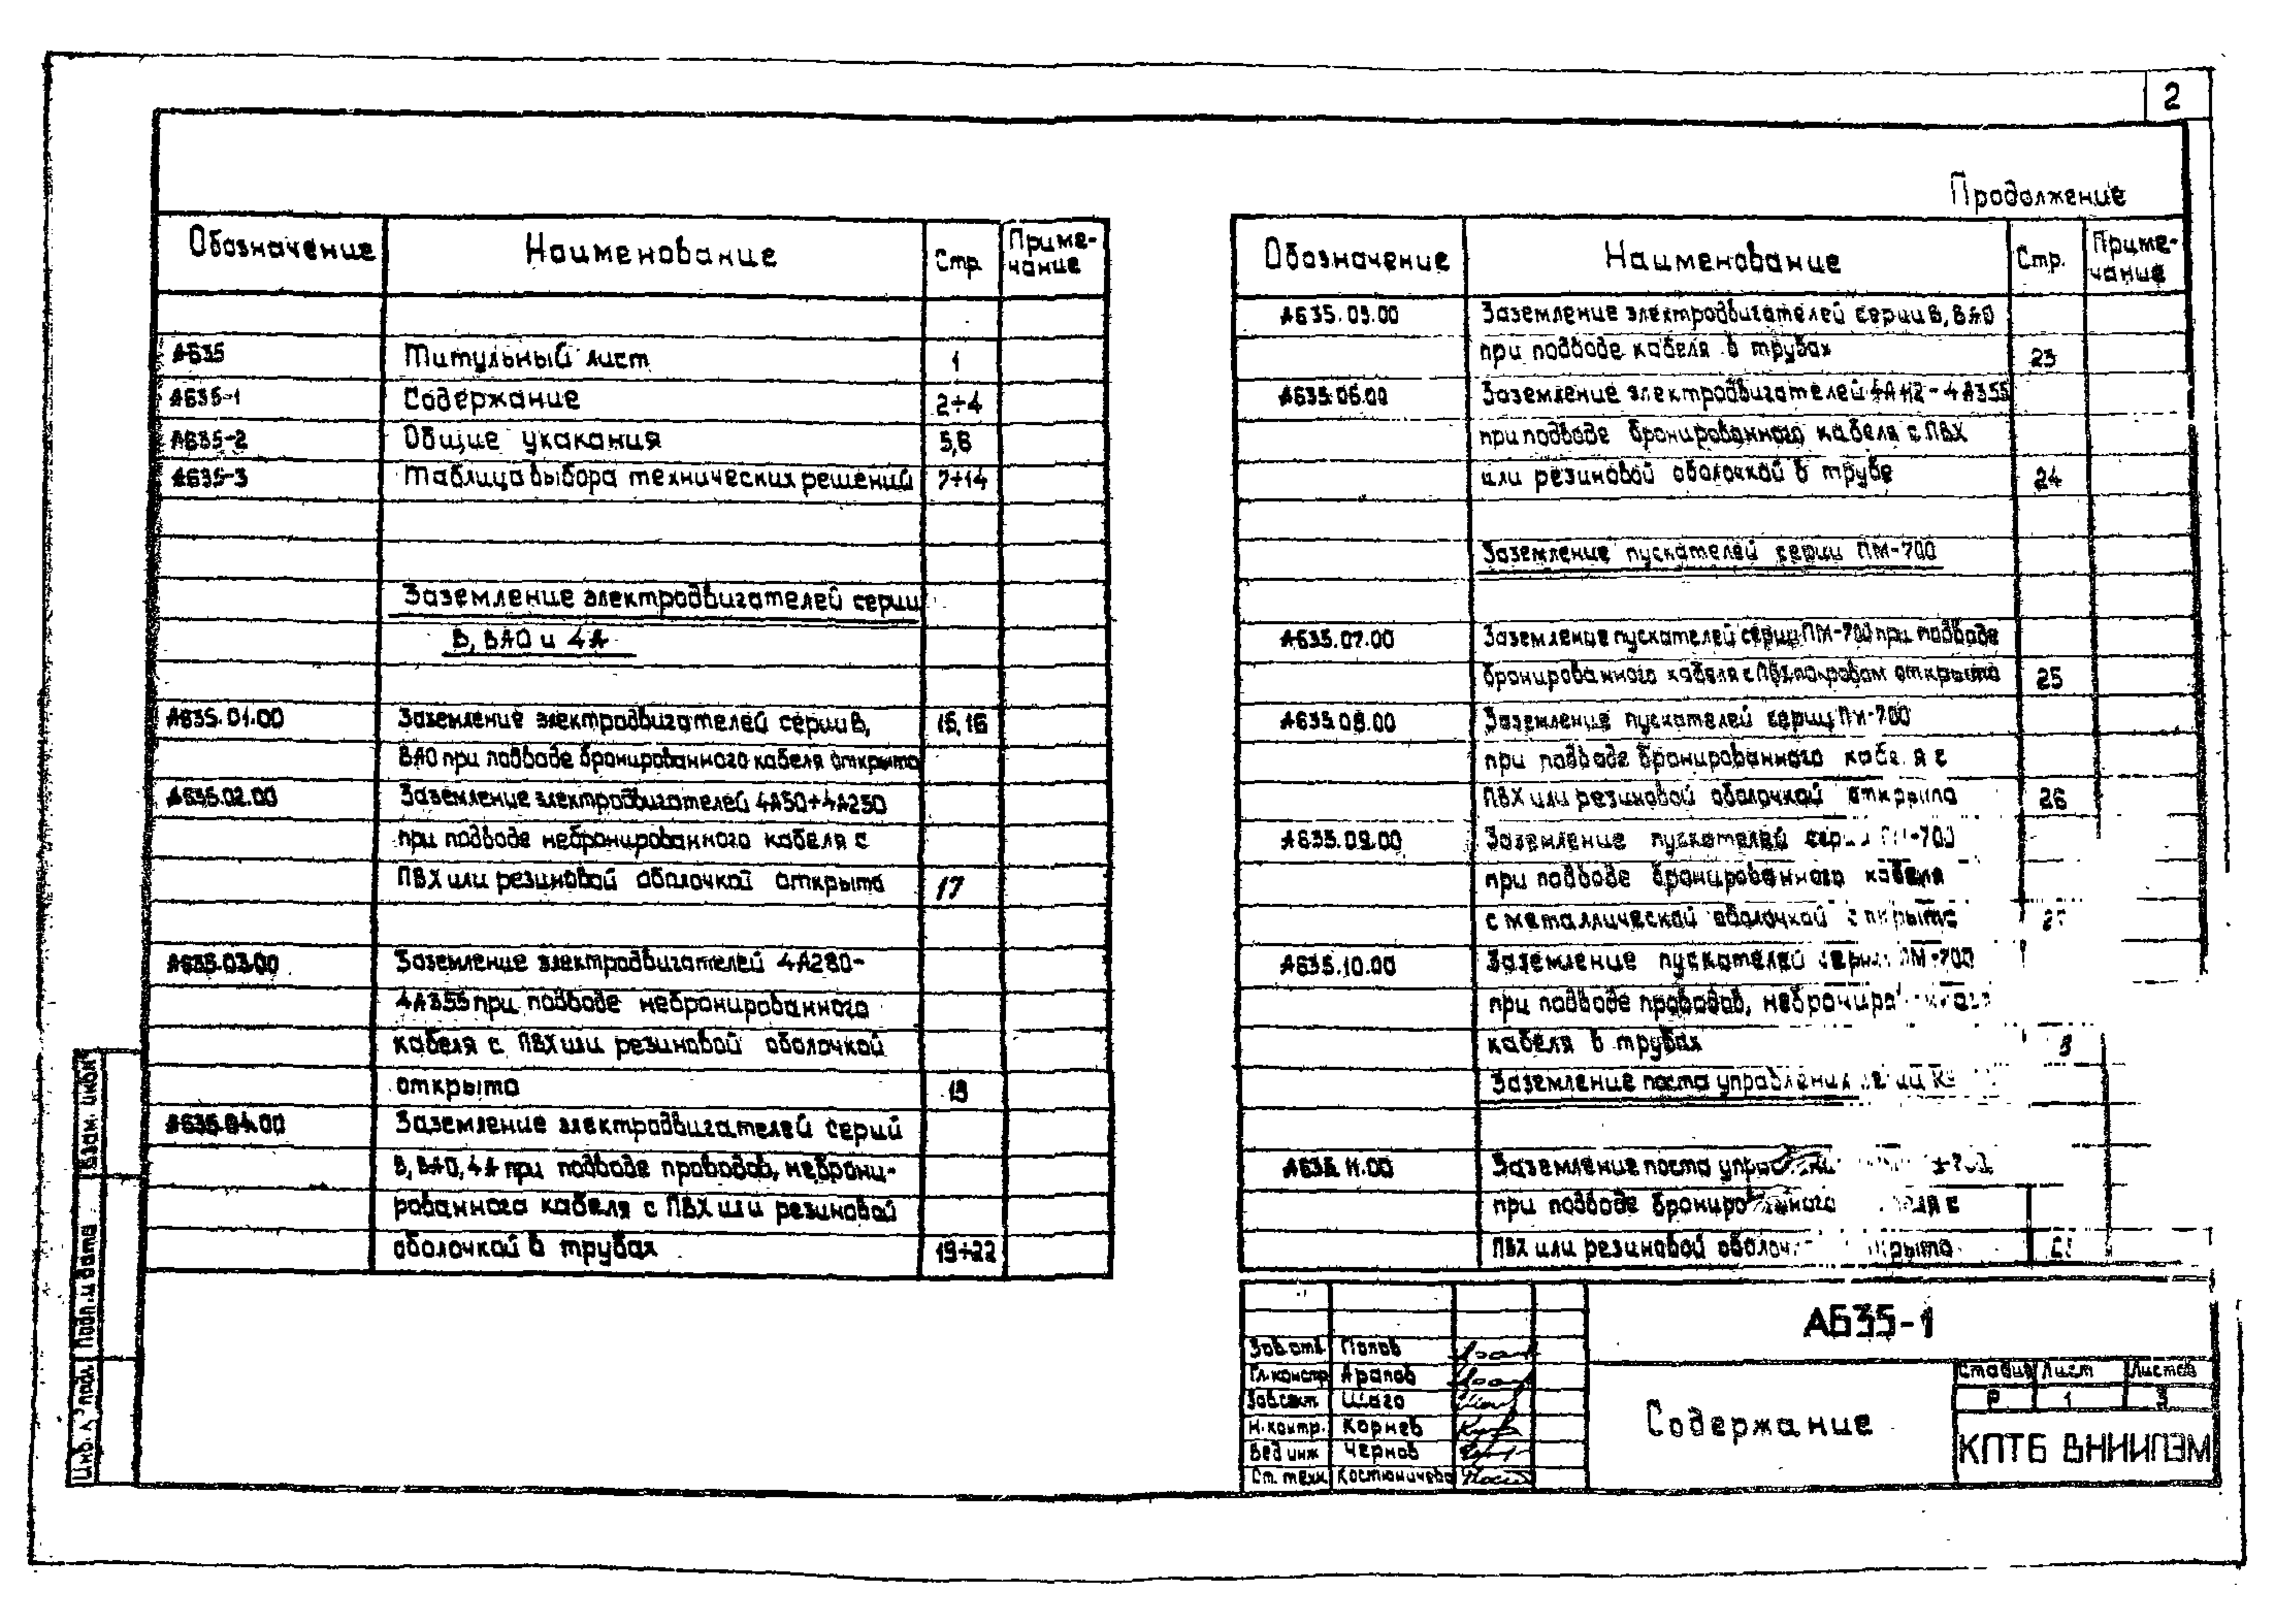 2
Обозначение Наименование Стр. Приме-
чание
А635 Титульный лист 1
А635-1 Содержание 2÷4
А635-2 Общие укакания 5,6
А635-3 Таблица выбора технических решений 7÷14
Заземление электродвигателей серии
В, ВАО и 4А
А635.01.00 Заземление электродвигателей серии В, 15,16
ВАО при подводе бронированного кабеля открыто
А635.02.00 Заземление электродвигателей 4А50÷4А250
при подводе небронированного кабеля с
ПВХ или резиновой оболочкой открыто 17
А635.03.00 Заземление электродвигателей 4А280-
4А355 при подводе небронированного
кабеля с ПВХ или резиновой оболочкой
открыто 18
А635.04.00 Заземление электродвигателей серий
В, ВАО, 4А при подводе проводов, неброни-
рованного кабеля с ПВХ или резиновой
оболочкой в трубах 19÷22
Продолжение
Обозначение Наименование Стр. Приме-
чание
А635.05.00 Заземление электродвигателей серии В, ВАО
при подводе кабеля в трубах 23
А635.06.00 Заземление электродвигателей 4А112-4А355
при подводе бронированного кабеля с ПВХ
или резиновой оболочкой в трубе 24
Заземление пускателей серии ПМ-700
А635.07.00 Заземление пускателей серии ПМ-700 при подводе
бронированного кабеля с ПВХ покровом открыто 25
А635.08.00 Заземление пускателей серии ПМ-700
при подводе бронированного кабеля с
ПВХ или резиновой оболочкой открыто 26
А635.09.00 Заземление пускателей серии ПМ-700
при подводе бронированного кабеля
с металлической оболочкой открыто
А635.10.00 Заземление пускателей серии ПМ-700
при подводе проводов, небронированного
кабеля в трубах
Заземление поста управления серии
А635.11.00 Заземление поста управления
при подводе бронированного кабеля с
ПВХ или резиновой оболочкой открыто
Взам. инв.№
Подп. и дата
Инв. № подл.
Зав.отд. Попов
Гл.констр. Арапов
Зав.сект. Шаго
Н.контр. Корнев
Вед.инж Чернов
Ст. техн. Костюничева
А635-1
Содержание
Стадия Лист Листов
Р 1 3
КПТБ ВНИИПЭМ